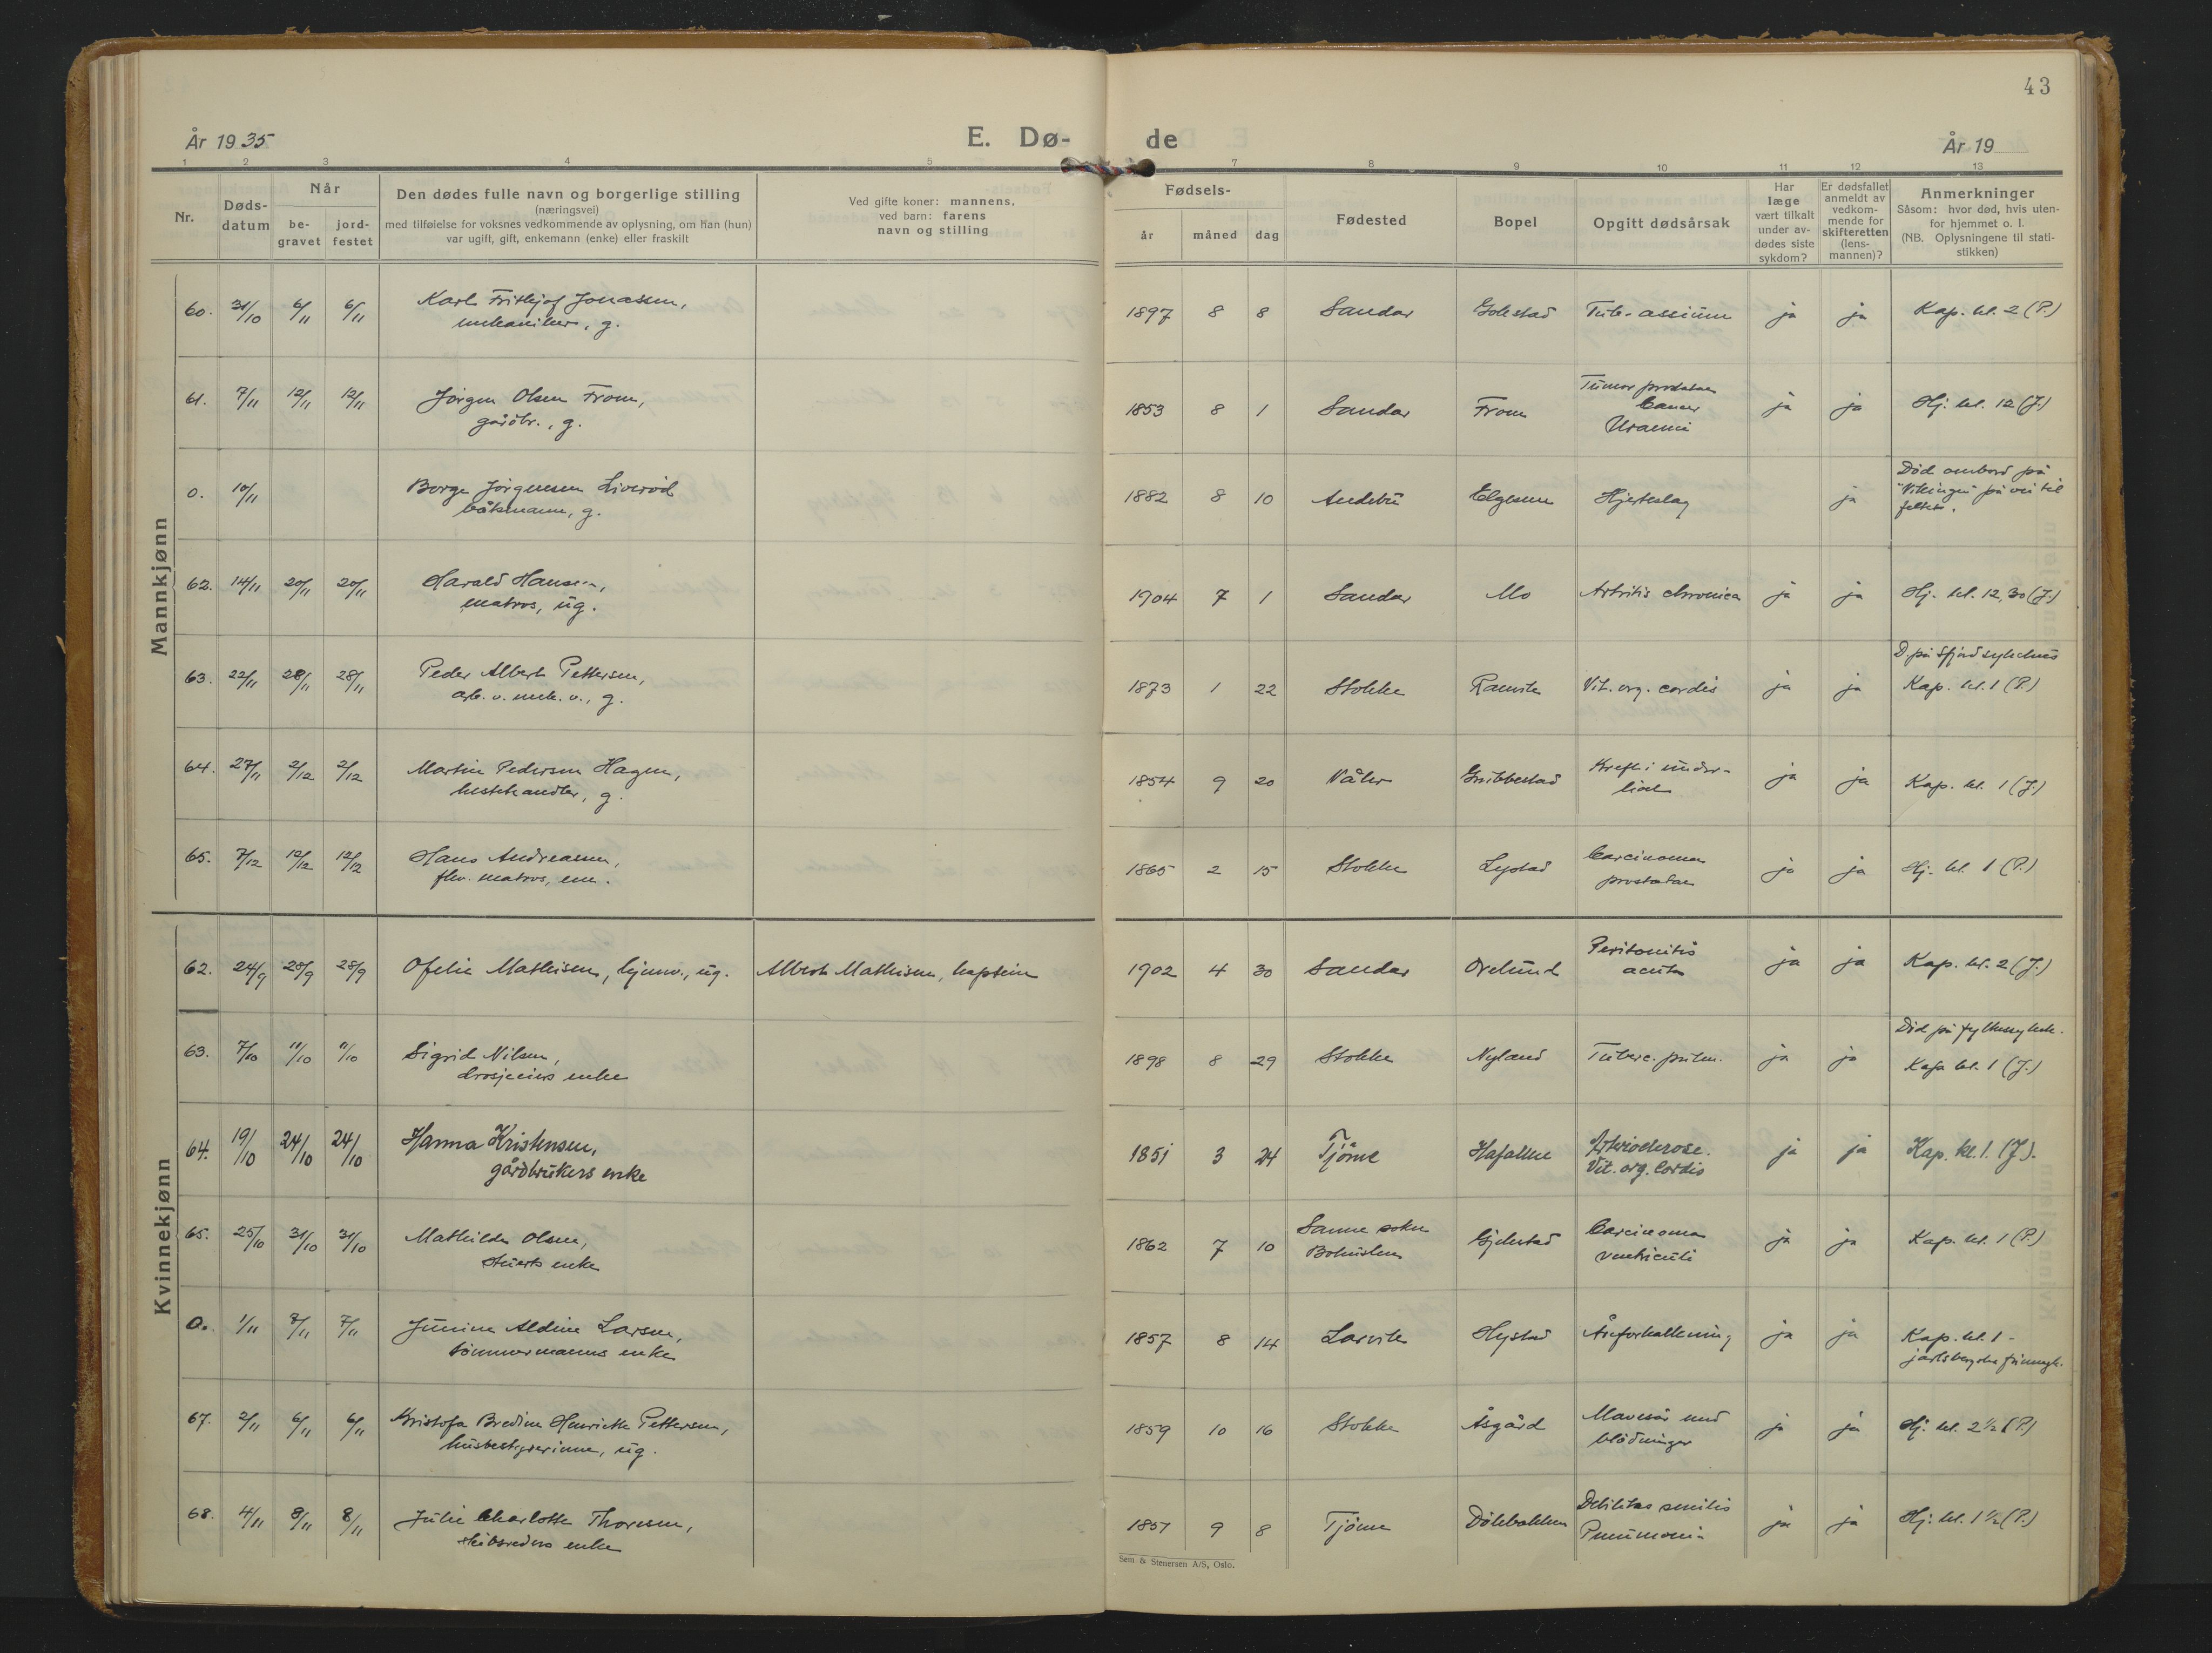 43
År 1935
E. Dø-
de
År 19
1 2 3 4 5 7 8 9 10 11 12 13
Nr.
Døds-
datum
Når
be-
gravet
jord-
festet
Den dødes fulle navn og borgerlige stilling
(næringsvei)
med tilføielse for voksnes vedkommende av oplysning, om han (hun)
var ugift, gift, enkemann (enke) eller fraskilt
Ved gifte koner: mannens,
ved barn: farens
navn og stilling
Fødsels-
år måned dag
Fødested
Bopel
Opgitt dødsårsak
Har
læge
vært tilkalt
under av-
dødes siste
sykdom?
Er dødsfallet
anmeldt av
vedkom-
mende for
skifteretten
(lens-
mannen)?
Anmerkninger
Såsom: hvor død, hvis uten-
for hjemmet o. l.
(NB. Oplysningene til stati-
stikken)
Mannkjønn
60. 31/10 6/11 6/11 Karl Frithjof Jonassen, 1897 8 8 Sandar ja ja Kap. kl. 2 (P.)
mekaniker, g.
61. 7/11 12/11 12/11 Jørgen Olsen From, 1853 8 1 Sandar From Tumor prostatae ja ja Hj. kl. 12 (J.)
gårdbr., g. Cancer
Uraemi
0. 10/11 Borge Jørgensen Liverød 1882 8 10 Andebu Elgesem Hjerteslag ja Död ombord på
båtsmann, g. "Vikingen" på vei til
feltet.
62. 14/11 20/11 20/11 Harald Hansen, 1904 7 1 Sandar Mo Artritis chronica ja ja Hj. kl. 12,30 (J.)
matros, ug.
63. 22/11 28/11 28/11 Peder Albert Pettersen, 1873 1 22 Stokke Ranvik Vit. org. cordis ja ja D. på Sfjord sykehus
arb. v. mek. v., g. Kap. kl. 1 (P.)
64. 27/11 2/12 2/12 Martin Pedersen Hagen, 1854 9 20 Våler Gribbestad Kreft i under- ja ja Kap. kl. 1 (J.)
hestehandler, g. livet
65. 7/12 12/12 12/12 Hans Andreassen, 1865 2 15 Stokke Lystad Carcinoma ja ja Hj. kl. 1 (P.)
fhv. matros, enm. prostatae
Kvinnekjønn
62. 24/9 28/9 28/9 Ofelie Mathisen, hjemv., ug. Albert Mathisen, kaptein 1902 4 30 Sandar Ørelund Peritonitis ja ja Kap. kl. 2 (J.)
acuta
63. 7/10 11/10 11/10 Sigrid Nilsen, 1898 8 29 Stokke Nyland Tuberc. pulm. ja ja Död på fylkessykeh.
drosjeeiers enke Kap kl. 1 (J.)
64. 19/10 24/10 24/10 Hanna Kristensen, 1851 3 24 Tjöme Arteriosclerose. ja ja Kap. kl. 1. (J).
gårdbrukers enke Vit. org. Cordis
65. 25/10 31/10 31/10 Mathilde Olsen, 1862 7 10 Sanne sokn Gjekstad Carcinoma ja ja Kap. kl. 1 (P.)
stuerts enke Bohuslen ventriculi
0. 1/11 7/11 7/11 Junine Aldine Larsen, 1857 8 14 Larvik Hystad Åreforkalkning ja ja Kap. kl. 1 -
tömmermanns enke jarlsbergske frimenigh.
67. 2/11 6/11 6/11 Kristofa Bredine Henriette Pettersen, 1859 10 16 Stokke Åsgård Mavesår med ja ja Hj. kl. 2 1/2 (P.)
husbestyrerinne, ug. blödninger
68. 4/11 8/11 8/11 Julie Charlotte Thoresen, 1857 9 8 Tjöme Dölebakken Debilitas senilis ja ja Hj. kl. 1 1/2 (P.)
skibsreders enke Pneumoni
Sem & Stenersen A/S, Oslo.